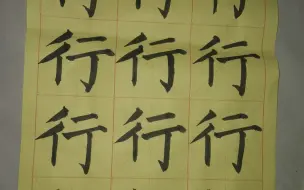 行行行
行行行